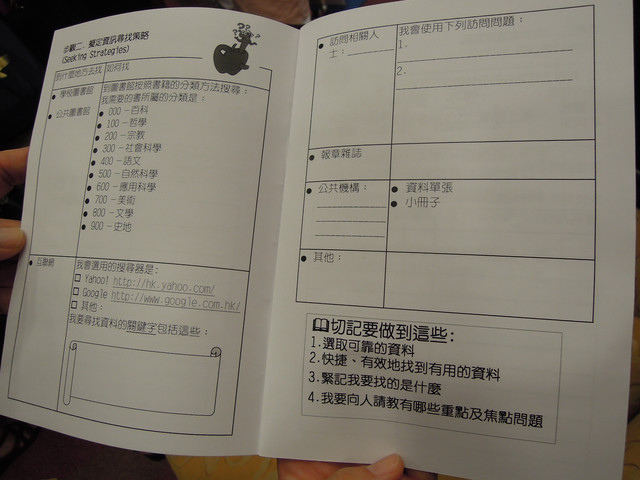 步驟二、擬定資訊尋找策略
(Seeking Strategies)
到什麼地方去找
如何找
學校圖書館
公共圖書館
到圖書館按照書籍的分類方法搜尋：
我需要的書所屬的分類是：
000－百科
100－哲學
200－宗教
300－社會科學
400－語文
500－自然科學
600－應用科學
700－美術
800－文學
900－史地
互聯網
我會選用的搜尋器是：
Yahoo! http://hk.yahoo.com/
Google http://www.google.com.hk/
其他：
我要尋找資料的關鍵字包括這些：
訪問相關人
士：
我會使用下列訪問問題：
1.
2.
報章雜誌
公共機構：
資料單張
小冊子
其他：
切記要做到這些：
1.選取可靠的資料
2.快捷、有效地找到有用的資料
3.緊記我要找的是什麼
4.我要向人請教有哪些重點及焦點問題